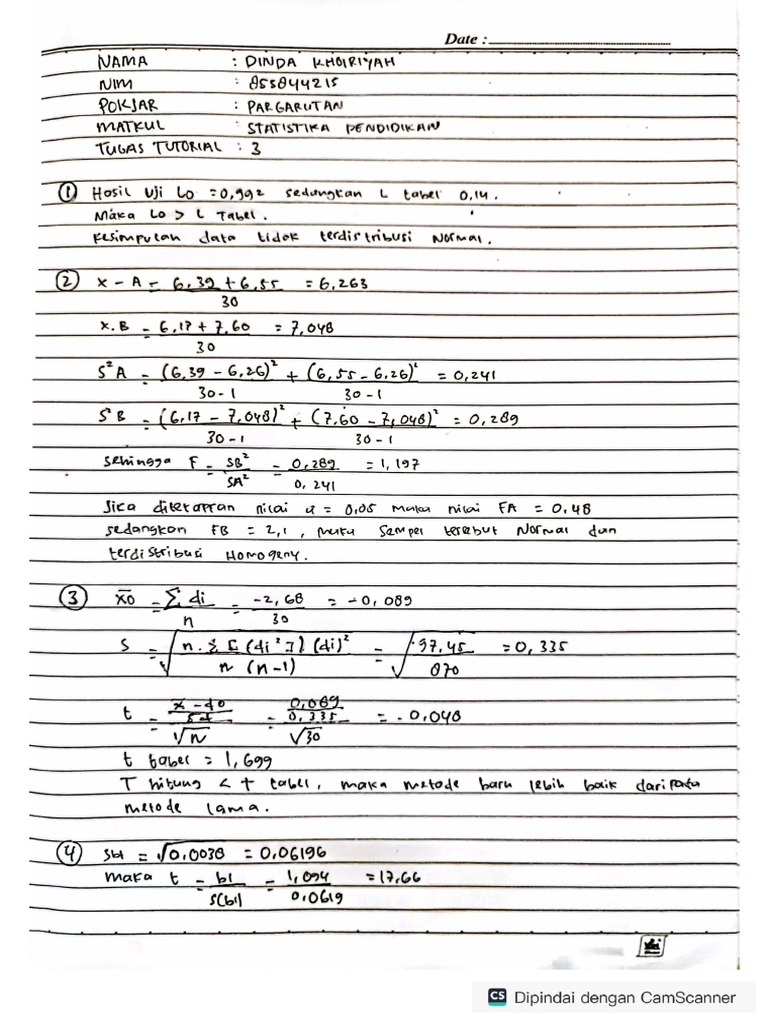 Date :
NAMA : DINDA KHOIRIYAH
NIM : 855844215
POKJAR : PARGARUTAN
MATKUL : STATISTIKA PENDIDIKAN
TUGAS TUTORIAL : 3
① Hasil Uji Lo = 0,992 sedangkan L tabel 0,14.
Maka Lo > L Tabel.
Kesimpulan data tidak terdistribusi Normal.
② X - A = 6,39 + 6,55 / 30 = 6,263
X.B = 6,17 + 7,60 / 30 = 7,048
S²A = (6,39 - 6,26)² / 30-1 + (6,55 - 6,26)² / 30-1 = 0,241
S²B = (6,17 - 7,048)² / 30-1 + (7,60 - 7,048)² / 30-1 = 0,289
Sehingga F = SB² / SA² = 0,289 / 0,241 = 1,197
Jica diterapran nilai α = 0,05 maka nilai FA = 0,48
sedangkan FB = 2,1, maka Sampel tersebut Normal dan
terdistribusi Homogeny.
③ X̄D = Σ di / n = -2,68 / 30 = -0,089
S = √ n.Σ [(di²)] (di)² / n (n-1) = √ 97,45 / 870 = 0,335
t = x - do / sd / √n = 0,089 / 0,335 / √30 = -0,048
t tabel = 1,699
T hitung < t tabel, maka metode baru lebih baik dari pada
metode lama.
④ Sb1 = √0,0038 = 0,06196
maka t = b1 / S(b1) = 1,094 / 0,0619 = 17,66
CS Dipindai dengan CamScanner